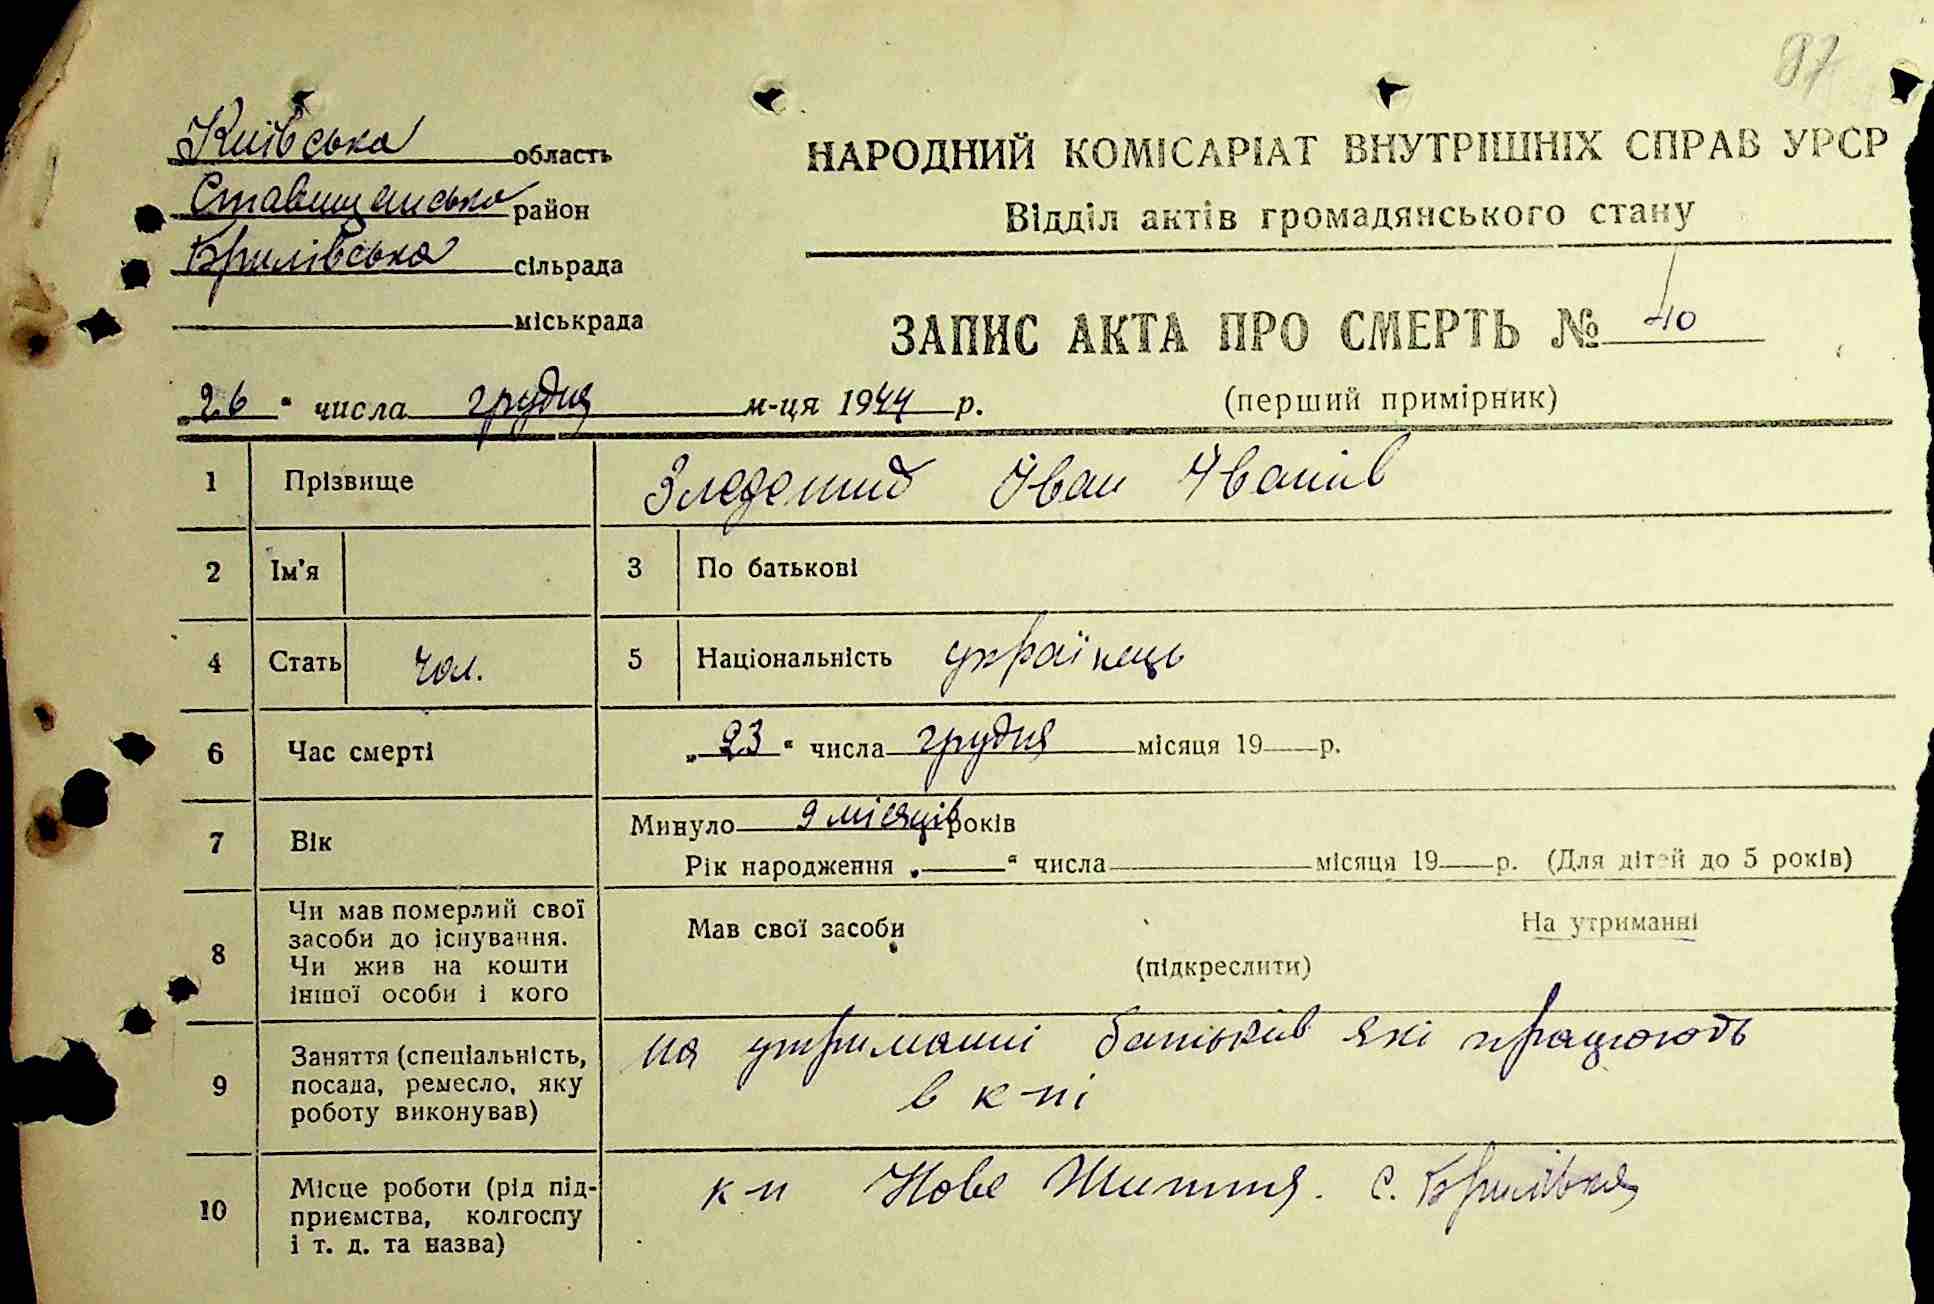 87
Київська область
Ставищенська район
Брилівська сільрада
міськрада
НАРОДНИЙ КОМІСАРІАТ ВНУТРІШНІХ СПРАВ УРСР
Відділ актів громадянського стану
ЗАПИС АКТА ПРО СМЕРТЬ № 40
(перший примірник)
„26“ числа грудня м-ця 1944 р.
1 Прізвище Іван Іванів
2 Ім'я 3 По батькові
4 Стать чол. 5 Національність українець
6 Час смерті „23“ числа грудня місяця 19 р.
7 Вік Минуло 9 місяців років
Рік народження „ “ числа місяця 19 р. (Для дітей до 5 років)
8 Чи мав померлий свої
засоби до існування.
Чи жив на кошти
іншої особи і кого
Мав свої засоби На утриманні
(підкреслити)
9 Заняття (спеціальність,
посада, ремесло, яку
роботу виконував)
на утриманні батьків які працюють
в к-пі
10 Місце роботи (рід під-
приємства, колгоспу
і т. д. та назва)
к-п Нове Життя. с. Брилівка